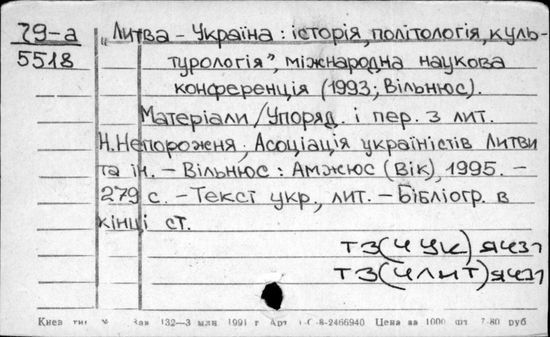 79-а
5518
„Литва – Україна: історія, політологія, куль-
турологія”, міжнародна наукова
конференція (1993; Вільнюс).
Матеріали/Упоряд. і пер. з лит.
Н.Непорожня; Асоціація україністів Литви
та ін. – Вільнюс: Амжюс (Вік), 1995. –
279 с. – Текст укр., лит. – Бібліогр. в
кінці ст.
ТЗ(4УК) ЯЧЗЛ
ТЗ(4ЛИТ) ЯЧЗЛ
Киев 132—3 млн. 1991 г 8-2466940 Цена за 1000 шт 7-80 руб